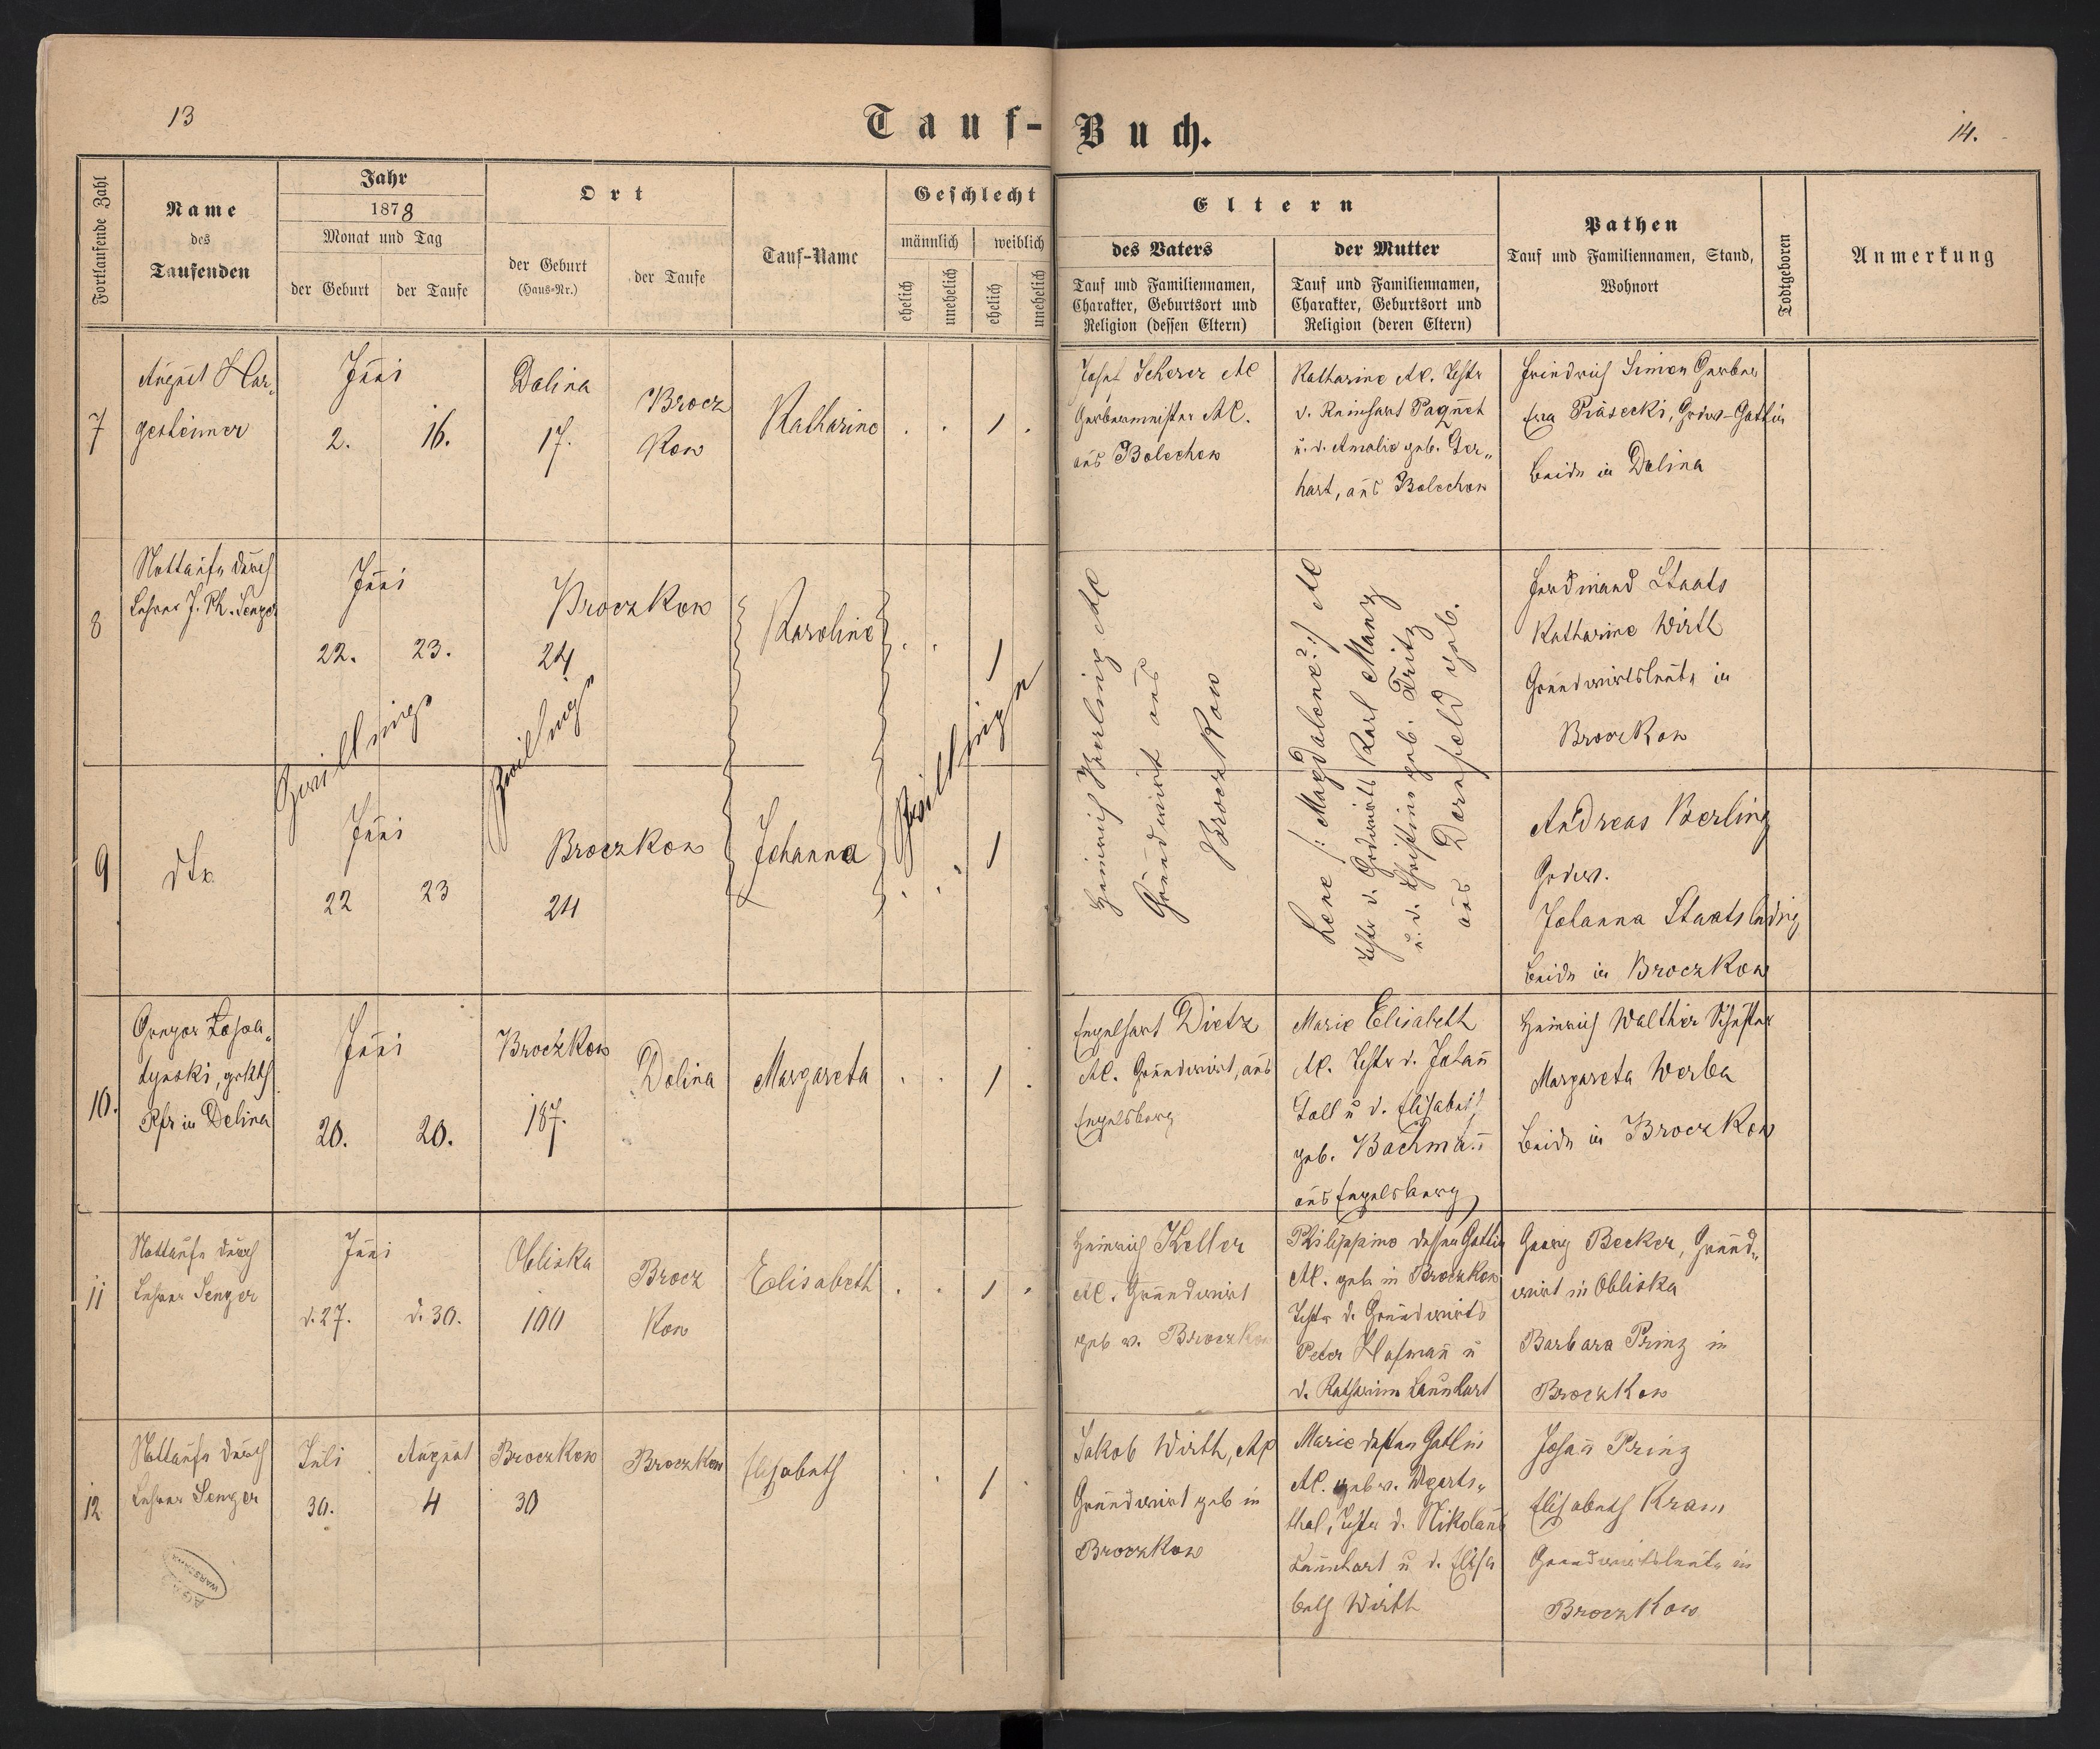 13
Tauf-Buch.
14.
Fortlaufende Zahl
Name
des
Taufenden
Jahr
1878
Monat und Tag
der Geburt
der Taufe
Ort
der Geburt
(Haus-Nr.)
der Taufe
Tauf-Name
Geschlecht
männlich
weiblich
ehelich
unehelich
ehelich
unehelich
Eltern
des Vaters
Tauf und Familiennamen,
Charakter, Geburtsort und
Religion (dessen Eltern)
der Mutter
Tauf und Familiennamen,
Charakter, Geburtsort und
Religion (deren Eltern)
Pathen
Tauf und Familiennamen, Stand,
Wohnort
Todtgeboren
Anmerkung
7
August Har„
gesheimer
Juni
2.
16.
Dolina
17.
Brocz
kow
Katharine
. . 1 .
Josef Scherer AC
Gerbermeister AC.
aus Bolechow
Katharine AC. Tchtr
v. Reinhart Paquet
u. d. Amalie geb. Ger„
hart, aus Bolechow
Friedrich Simon Gerber
Eva Piasecki, Grdw-Gattin
beide in Dolina
8
Nottaufe durch
Lehrer J. Ph. Senger
Juni
22.
23.
Broczkow
24
Karoline
. . 1
Zwillinge
Zwillinge
Zwillinge
Heinrich Berling AC
Grundwirt aus
Broczkow
Lene /: Magdalene?:/ AC
Tchtr d. Grdwirts Karl Manz
u. d. Christine geb. Fritz
aus Dornfeld geb.
Ferdinand Staats
Katharine Wirth
Grundwirtsleute in
Broczkow
9
dto
Juni
22
23
Broczkow
24
Johanna
. . . 1
Andreas Berling
Grdw.
Johanna Staats ledig
beide in Broczkow
10.
Gregor
tynski, grkth
Pfr in Dolina
Juni
20.
20.
Broczkow
187.
Dolina
Margareta
. . 1 .
Engelhart Dietz
AC. Grundwirt, aus
Engelsberg
Marie Elisabeth
AC. Tchtr d. Johann
Toll u d. Elisabeth
geb. Bachmann
aus Engelsberg
Heinrich Walther Schuster
Margareta Werba
beide in Broczkow
11
Nottaufe durch
Lehrer Senger
Juni
d. 27.
d. 30.
Obliska
100
Brocz
kow
Elisabeth
. . 1 .
Heinrich Keller
AC. Grundwirt
geb v. Broczkow
Philippine dessen Gattin
AC. geb in Broczkow
Tchtr d. Grundwirts
Peter Hofmann u
d. Katharina Launhart
Georg Becker, Grund„
wirt in Obliska
Barbara Prinz in
Broczkow
12
Nottaufe durch
Lehrer Senger
Juli
30.
August
4
Broczkow
30
Broczkow
Elisabeth
. . 1 .
Jakob Wirth, AC
Grundwirt geb in
Broczkow
Marie dessen Gattin
AC. geb v. Ugarts„
thal, Tchtr d. Nikolaus
Launhart u d. Elisa
beth Wirth
Johann Prinz
Elisabeth Kram
Grundwirtsleute in
Broczkow
WARSZAWA